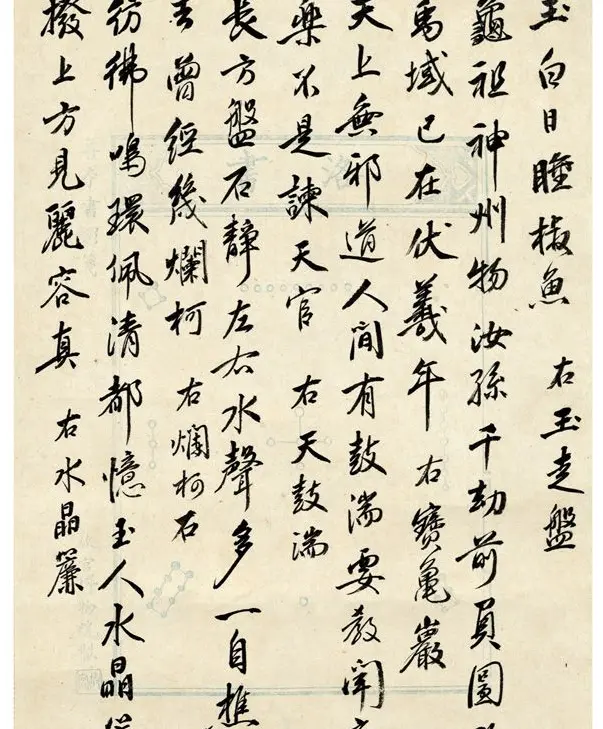 玉白日睡椒魚 右玉走盤
龜祖神州物汝孫千劫前負圖
馬域已在伏羲年 右寶亀巖
天上無邪道人間有鼓湍要教聞
樂不是諫天官 右天鼓湍
長方盤石靜左右水聲多一自樵
去曾經幾爛柯 右爛柯石
彷彿鳴環佩清都憶玉人水晶
撥上方見麗容真 右水晶簾